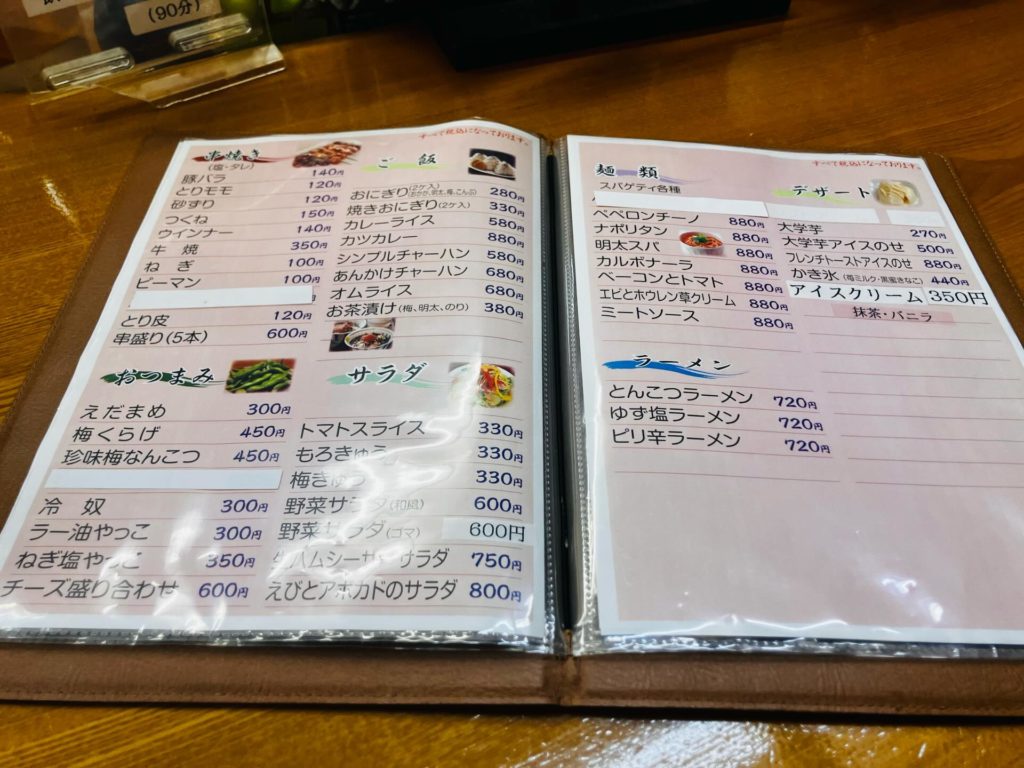 (90分)
すべて税込になっております。
串焼き
(塩・タレ)
豚バラ 140円
とりモモ 120円
砂ずり 120円
つくね 150円
ウインナー 140円
牛 焼 350円
ねぎ 100円
ピーマン 100円
とり皮 120円
串盛り(5本) 600円
おつまみ
えだまめ 300円
梅くらげ 450円
珍味梅なんこつ 450円
冷 奴 300円
ラー油やっこ 300円
ねぎ塩やっこ 350円
チーズ盛り合わせ 600円
ご 飯
おにぎり(2ケ入) 280円
焼きおにぎり(2ケ入) 330円
カレーライス 580円
カツカレー 880円
シンプルチャーハン 580円
あんかけチャーハン 680円
オムライス 680円
お茶漬け(梅、明太、のり) 380円
サラダ
トマトスライス 330円
もろきゅう 330円
梅きゅう 330円
野菜サラダ(和風) 600円
野菜サラダ(ゴマ) 600円
生ハムシーザーサラダ 750円
えびとアボカドのサラダ 800円
すべて税込になっております。
麺 類
スパゲティ各種
ペペロンチーノ 880円
ナポリタン 880円
明太スパ 880円
カルボナーラ 880円
ベーコンとトマト 880円
エビとホウレン草クリーム 880円
ミートソース 880円
ラーメン
とんこつラーメン 720円
ゆず塩ラーメン 720円
ピリ辛ラーメン 720円
デザート
大学芋 270円
大学芋アイスのせ 500円
フレンチトーストアイスのせ 880円
かき氷(苺ミルク・黒蜜きなこ) 440円
アイスクリーム 350円
抹茶・バニラ